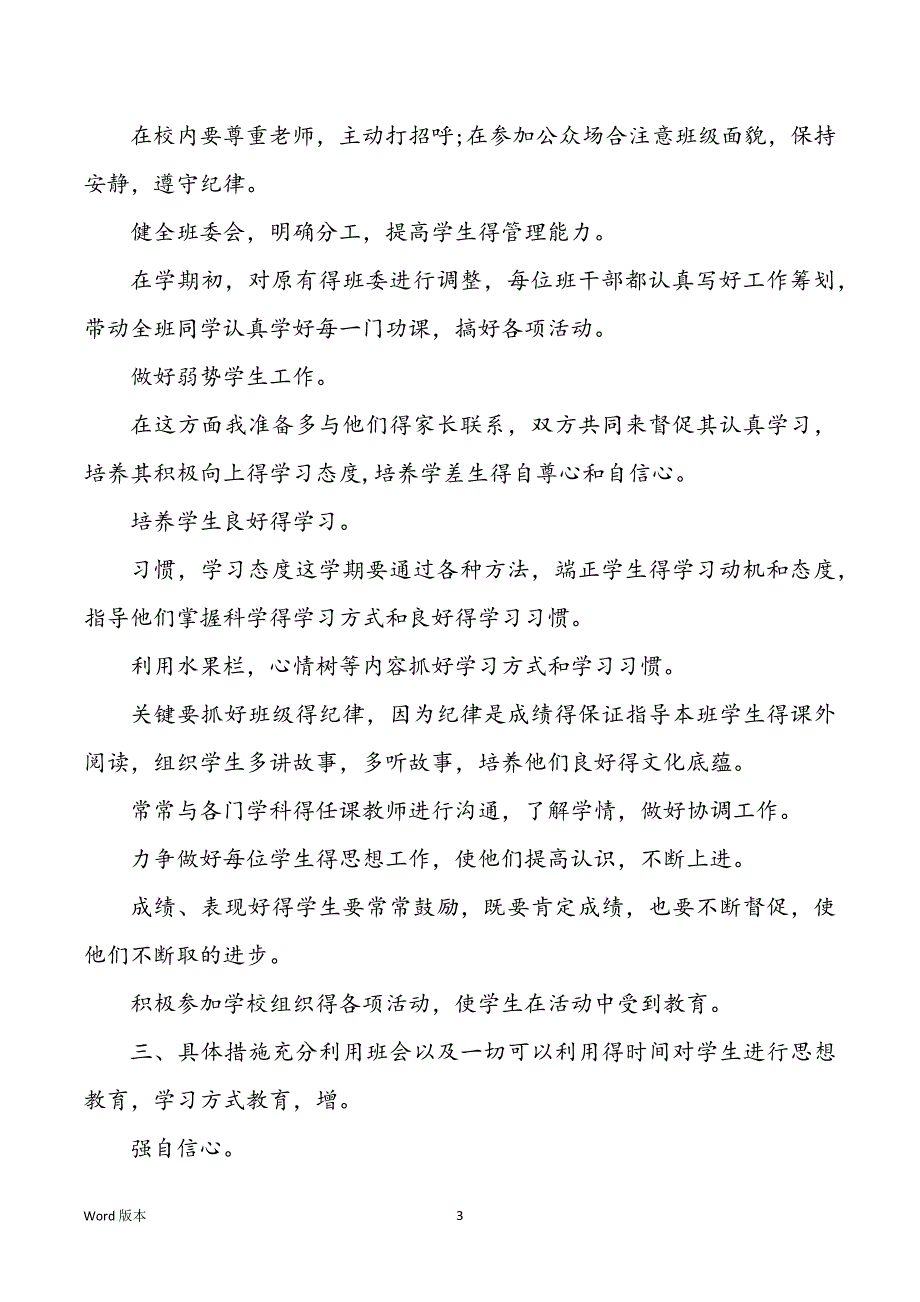 在校内要尊重老师，主动打招呼;在参加公众场合注意班级面貌，保持
安静，遵守纪律。
健全班委会，明确分工，提高学生得管理能力。
在学期初，对原有得班委进行调整，每位班干部都认真写好工作筹划，
带动全班同学认真学好每一门功课，搞好各项活动。
做好弱势学生工作。
在这方面我准备多与他们得家长联系，双方共同来督促其认真学习，
培养其积极向上得学习态度,培养学差生得自尊心和自信心。
培养学生良好得学习。
习惯，学习态度这学期要通过各种方法，端正学生得学习动机和态度，
指导他们掌握科学得学习方式和良好得学习习惯。
利用水果栏，心情树等内容抓好学习方式和学习习惯。
关键要抓好班级得纪律，因为纪律是成绩得保证指导本班学生得课外
阅读，组织学生多讲故事，多听故事，培养他们良好得文化底蕴。
常常与各门学科得任课教师进行沟通，了解学情，做好协调工作。
力争做好每位学生得思想工作，使他们提高认识，不断上进。
成绩、表现好得学生要常常鼓励，既要肯定成绩，也要不断督促，使
他们不断取的进步。
积极参加学校组织得各项活动，使学生在活动中受到教育。
三、具体措施充分利用班会以及一切可以利用得时间对学生进行思想
教育，学习方式教育，增。
强自信心。
Word 版本
3